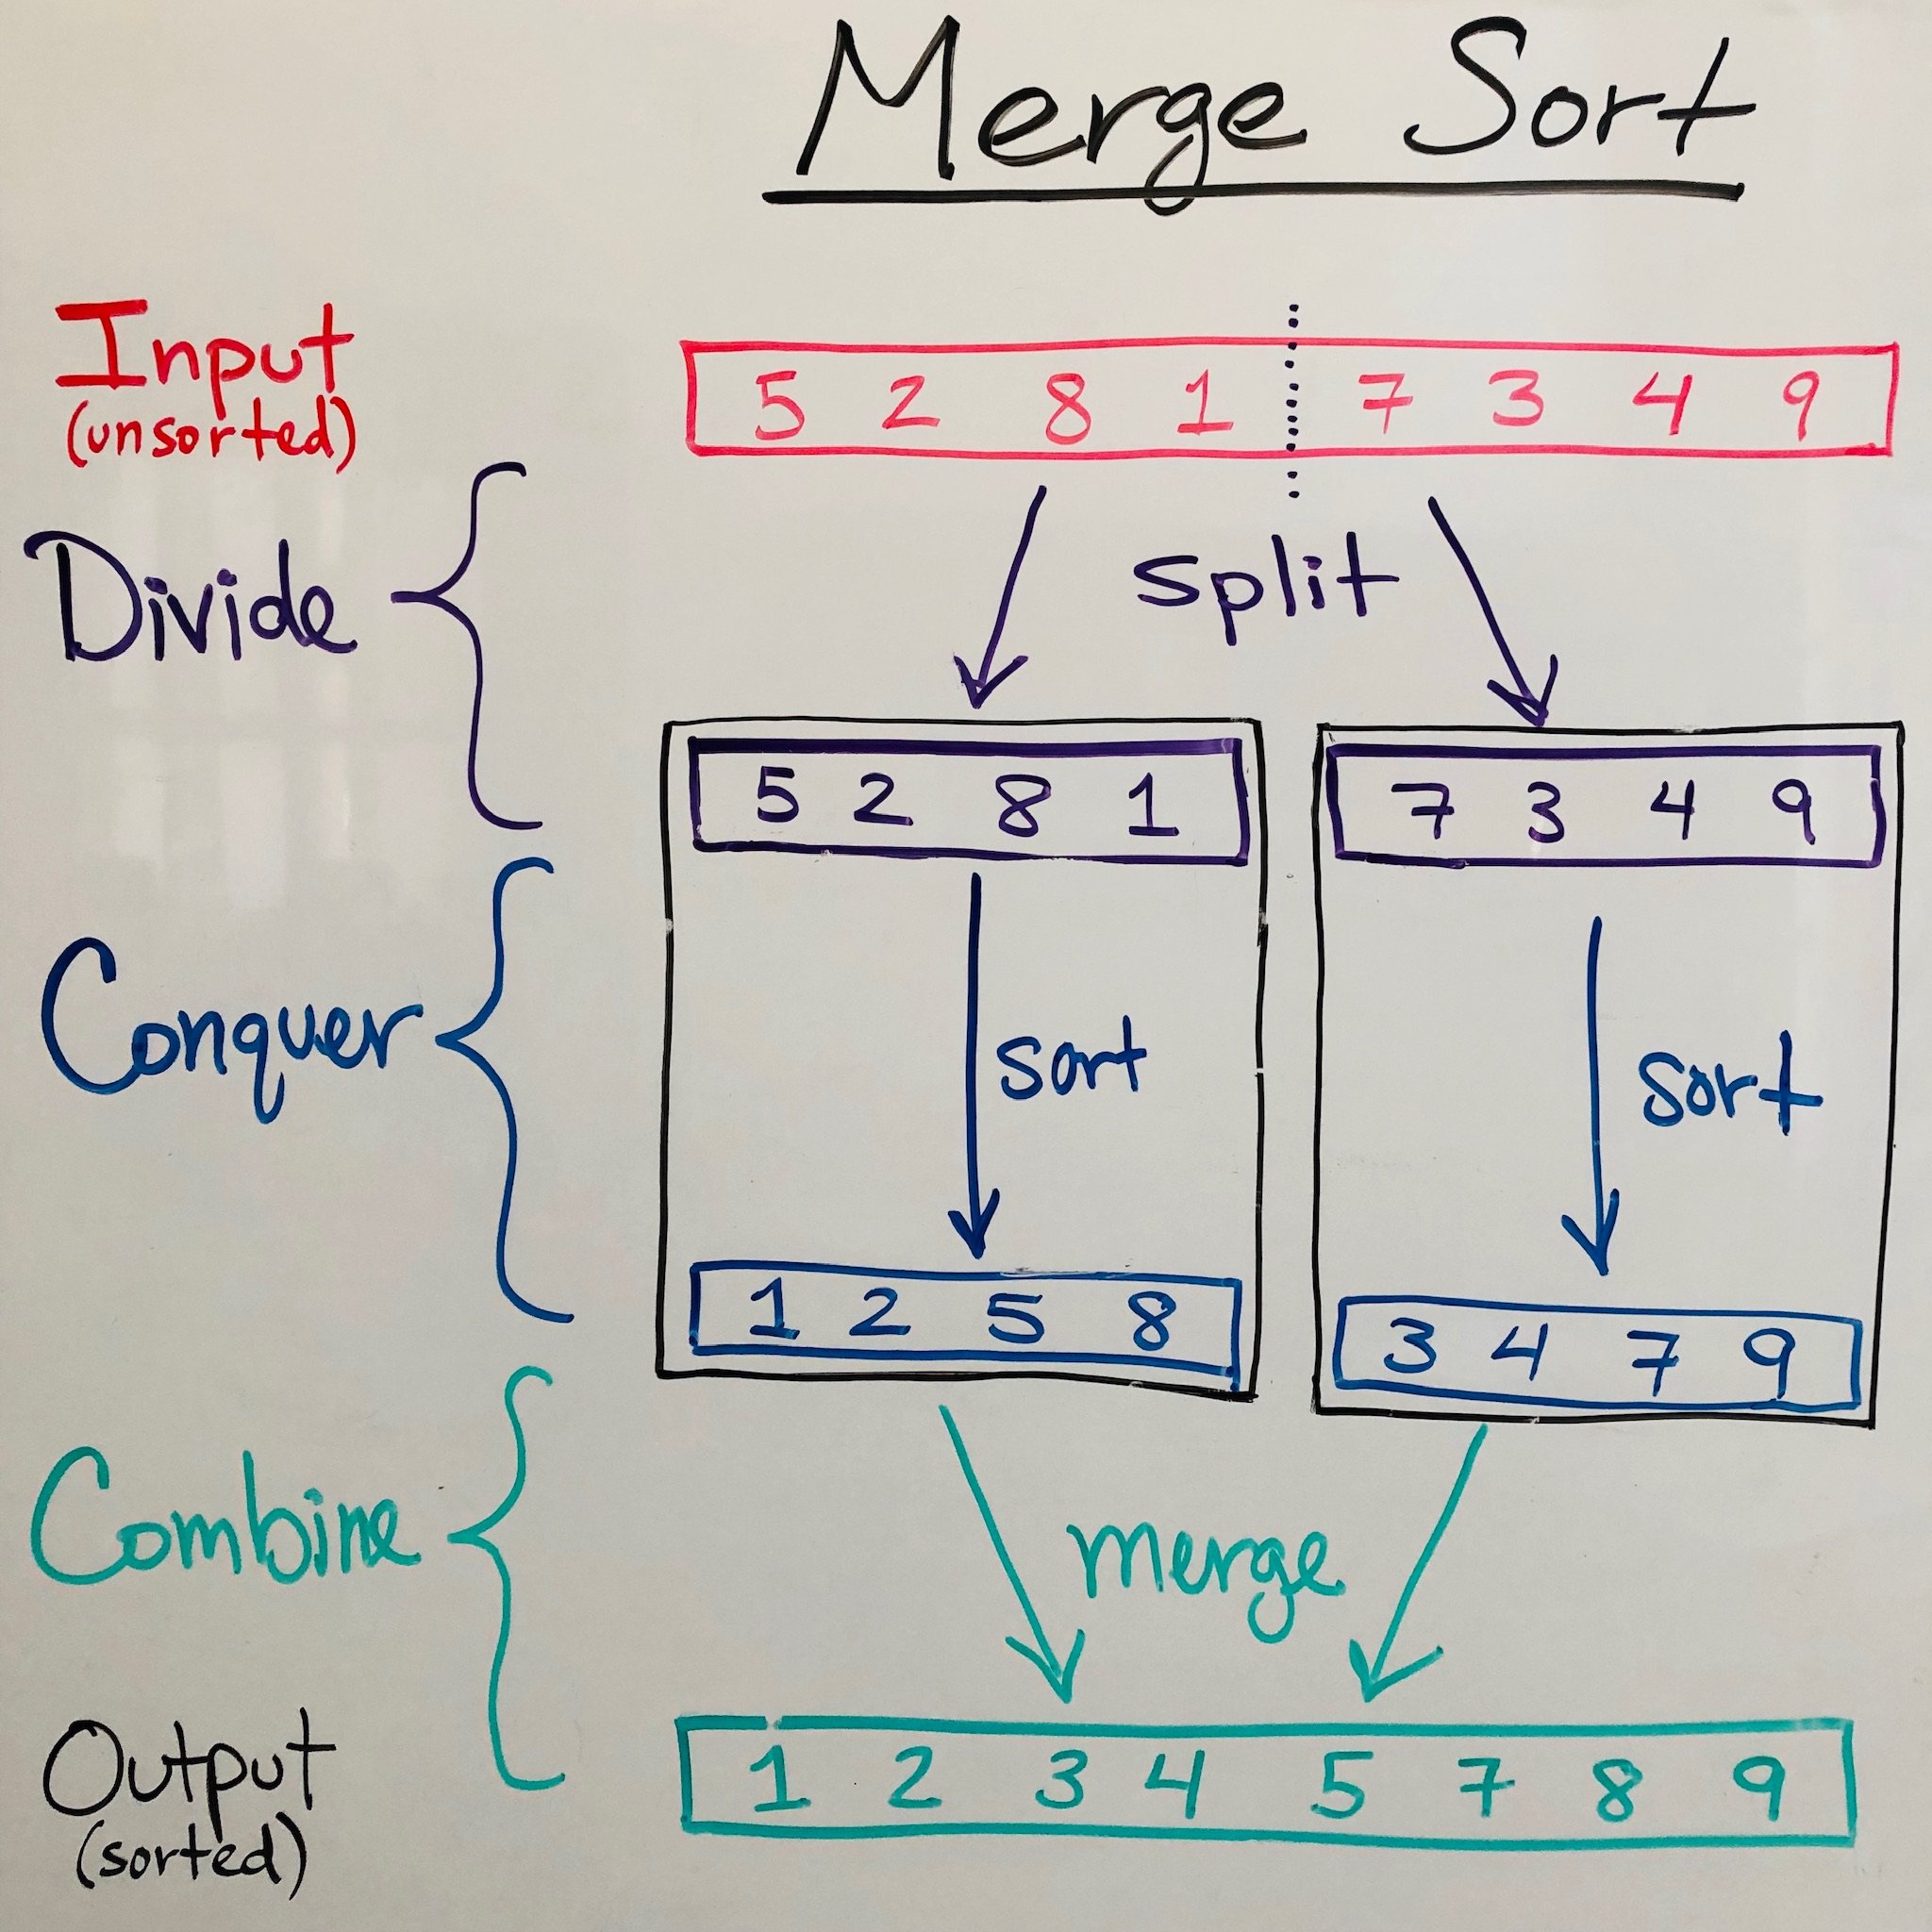 Merge Sort
Input
(unsorted)
5 2 8 1 7 3 4 9
Divide
split
5 2 8 1
7 3 4 9
Conquer
sort
sort
1 2 5 8
3 4 7 9
Combine
merge
Output
(sorted)
1 2 3 4 5 7 8 9